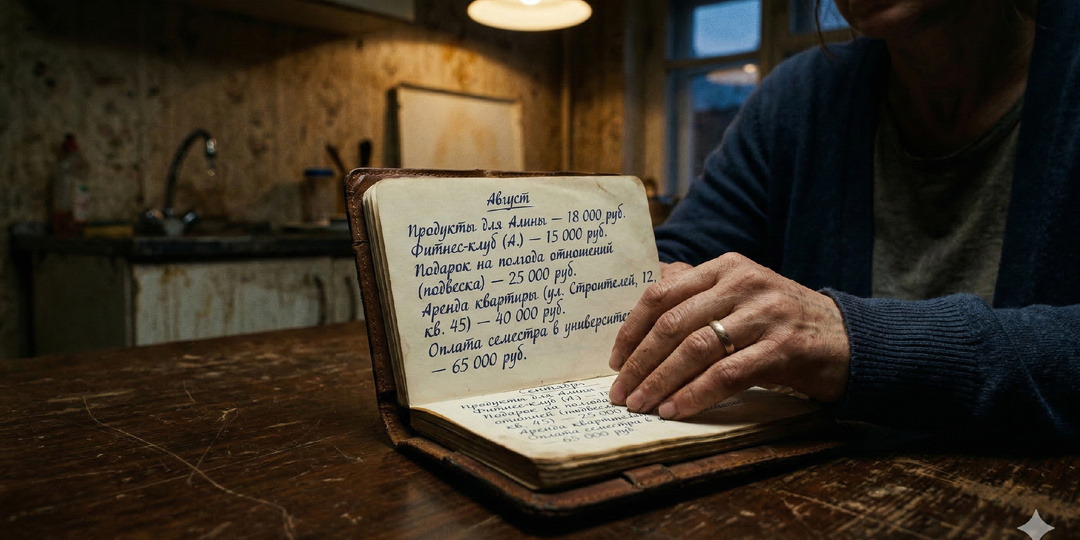 Август
Продукты для Алины — 18 000 руб.
Фитнес-клуб (А.) — 15 000 руб.
Подарок на полгода отношений
(подвеска) — 25 000 руб.
Аренда квартиры (ул. Строителей, 12,
кв. 45) — 40 000 руб.
Оплата семестра в университе
— 65 000 руб.
Сентябрь
Продукты для Алины —
Фитнес-клуб (А) —
Подарок на полгода
кв. 45) — 25 000
Аренда квартиры
Оплата семестра в
— 65 000 руб